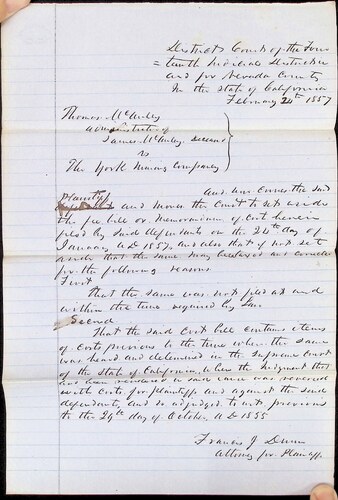 District Court of the Four
= teenth Judicial District
and for Nevada County
In the State of California
February 24th 1857
Thomas McAuley
administrator of
James McAuley deceased
vs
The York Mining Company
Plaintiff
And now comes the said
and moves the Court to set aside
the fee bill or Memorandum of Cost herein
filed by said defendants on the 20th day of
January AD 1857 and also that if not set
aside that the same may be
for the following reasons
First
That the same was not filed at and
within the time required by law
Second
That the said Cost bill contains items
of Costs previous to the time when the same
was heard and determined in the Supreme Court
of the State of California where the Judgment that
had been rendered in said cause was reversed
with Costs for plaintiff and against the said
defendants, and so adjudged to wit previous
to the 29th day of October AD 1855
Francis J Dunn
Attorney for Plaintiff